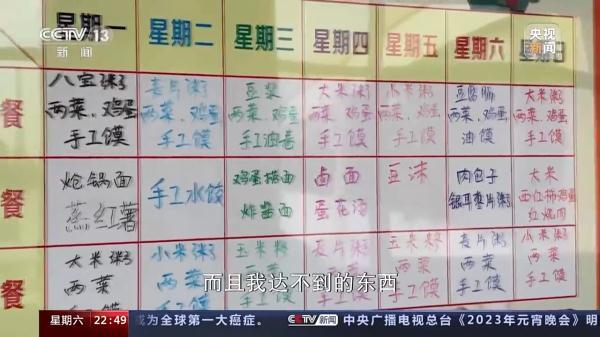 CCTV-13
新闻
央视新闻
星期一 星期二 星期三 星期四 星期五 星期六
餐 八宝粥 麦片粥 豆浆 大米粥 小米粥 豆腐脑 大米粥
两菜、鸡蛋 两菜、鸡蛋 两菜、鸡蛋 两菜、鸡蛋 两菜、鸡蛋 两菜、鸡蛋 两菜、鸡蛋
手工馍 手工馍 手工油卷 手工馍 手工馍 油馍 手工馍
餐 炝锅面 手工水饺 鸡蛋捞面 卤面 豆沫 肉包子 大米
蒸红薯 炸酱面 蛋花汤 银耳枣片粥 西红柿鸡蛋
红烧肉
餐 大米粥 小米粥 玉米粥 麦片粥 玉米粥 麦片粥 小米粥
两菜 两菜 两菜 两菜 两菜 两菜 两菜
手工馍 手工馍 手工馍 手工馍 手工馍
而且我达不到的东西
星期六 22:49 成为全球第一大癌症。 CCTV新闻 中央广播电视总台《2023年元宵晚会》明